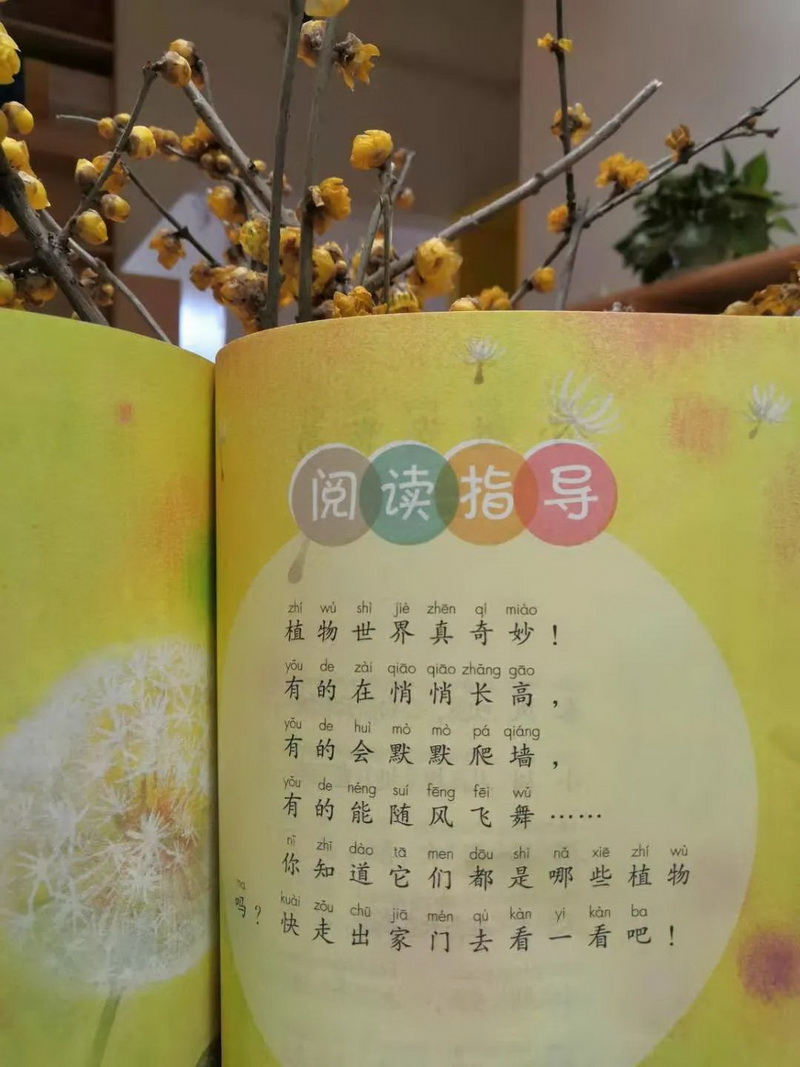 阅读指导
zhí wù shì jiè zhēn qí miào
植物世界真奇妙！
yǒu de zài qiāo qiāo zhǎng gāo
有的在悄悄长高，
yǒu de huì mò mò pá qiáng
有的会默默爬墙，
yǒu de néng suí fēng fēi wǔ
有的能随风飞舞……
nǐ zhī dào tā men dōu shì nǎ xiē zhí wù
你知道它们都是哪些植物
ma
吗？
kuài zǒu chū jiā mén qù kàn yi kàn ba
快走出家门去看一看吧！